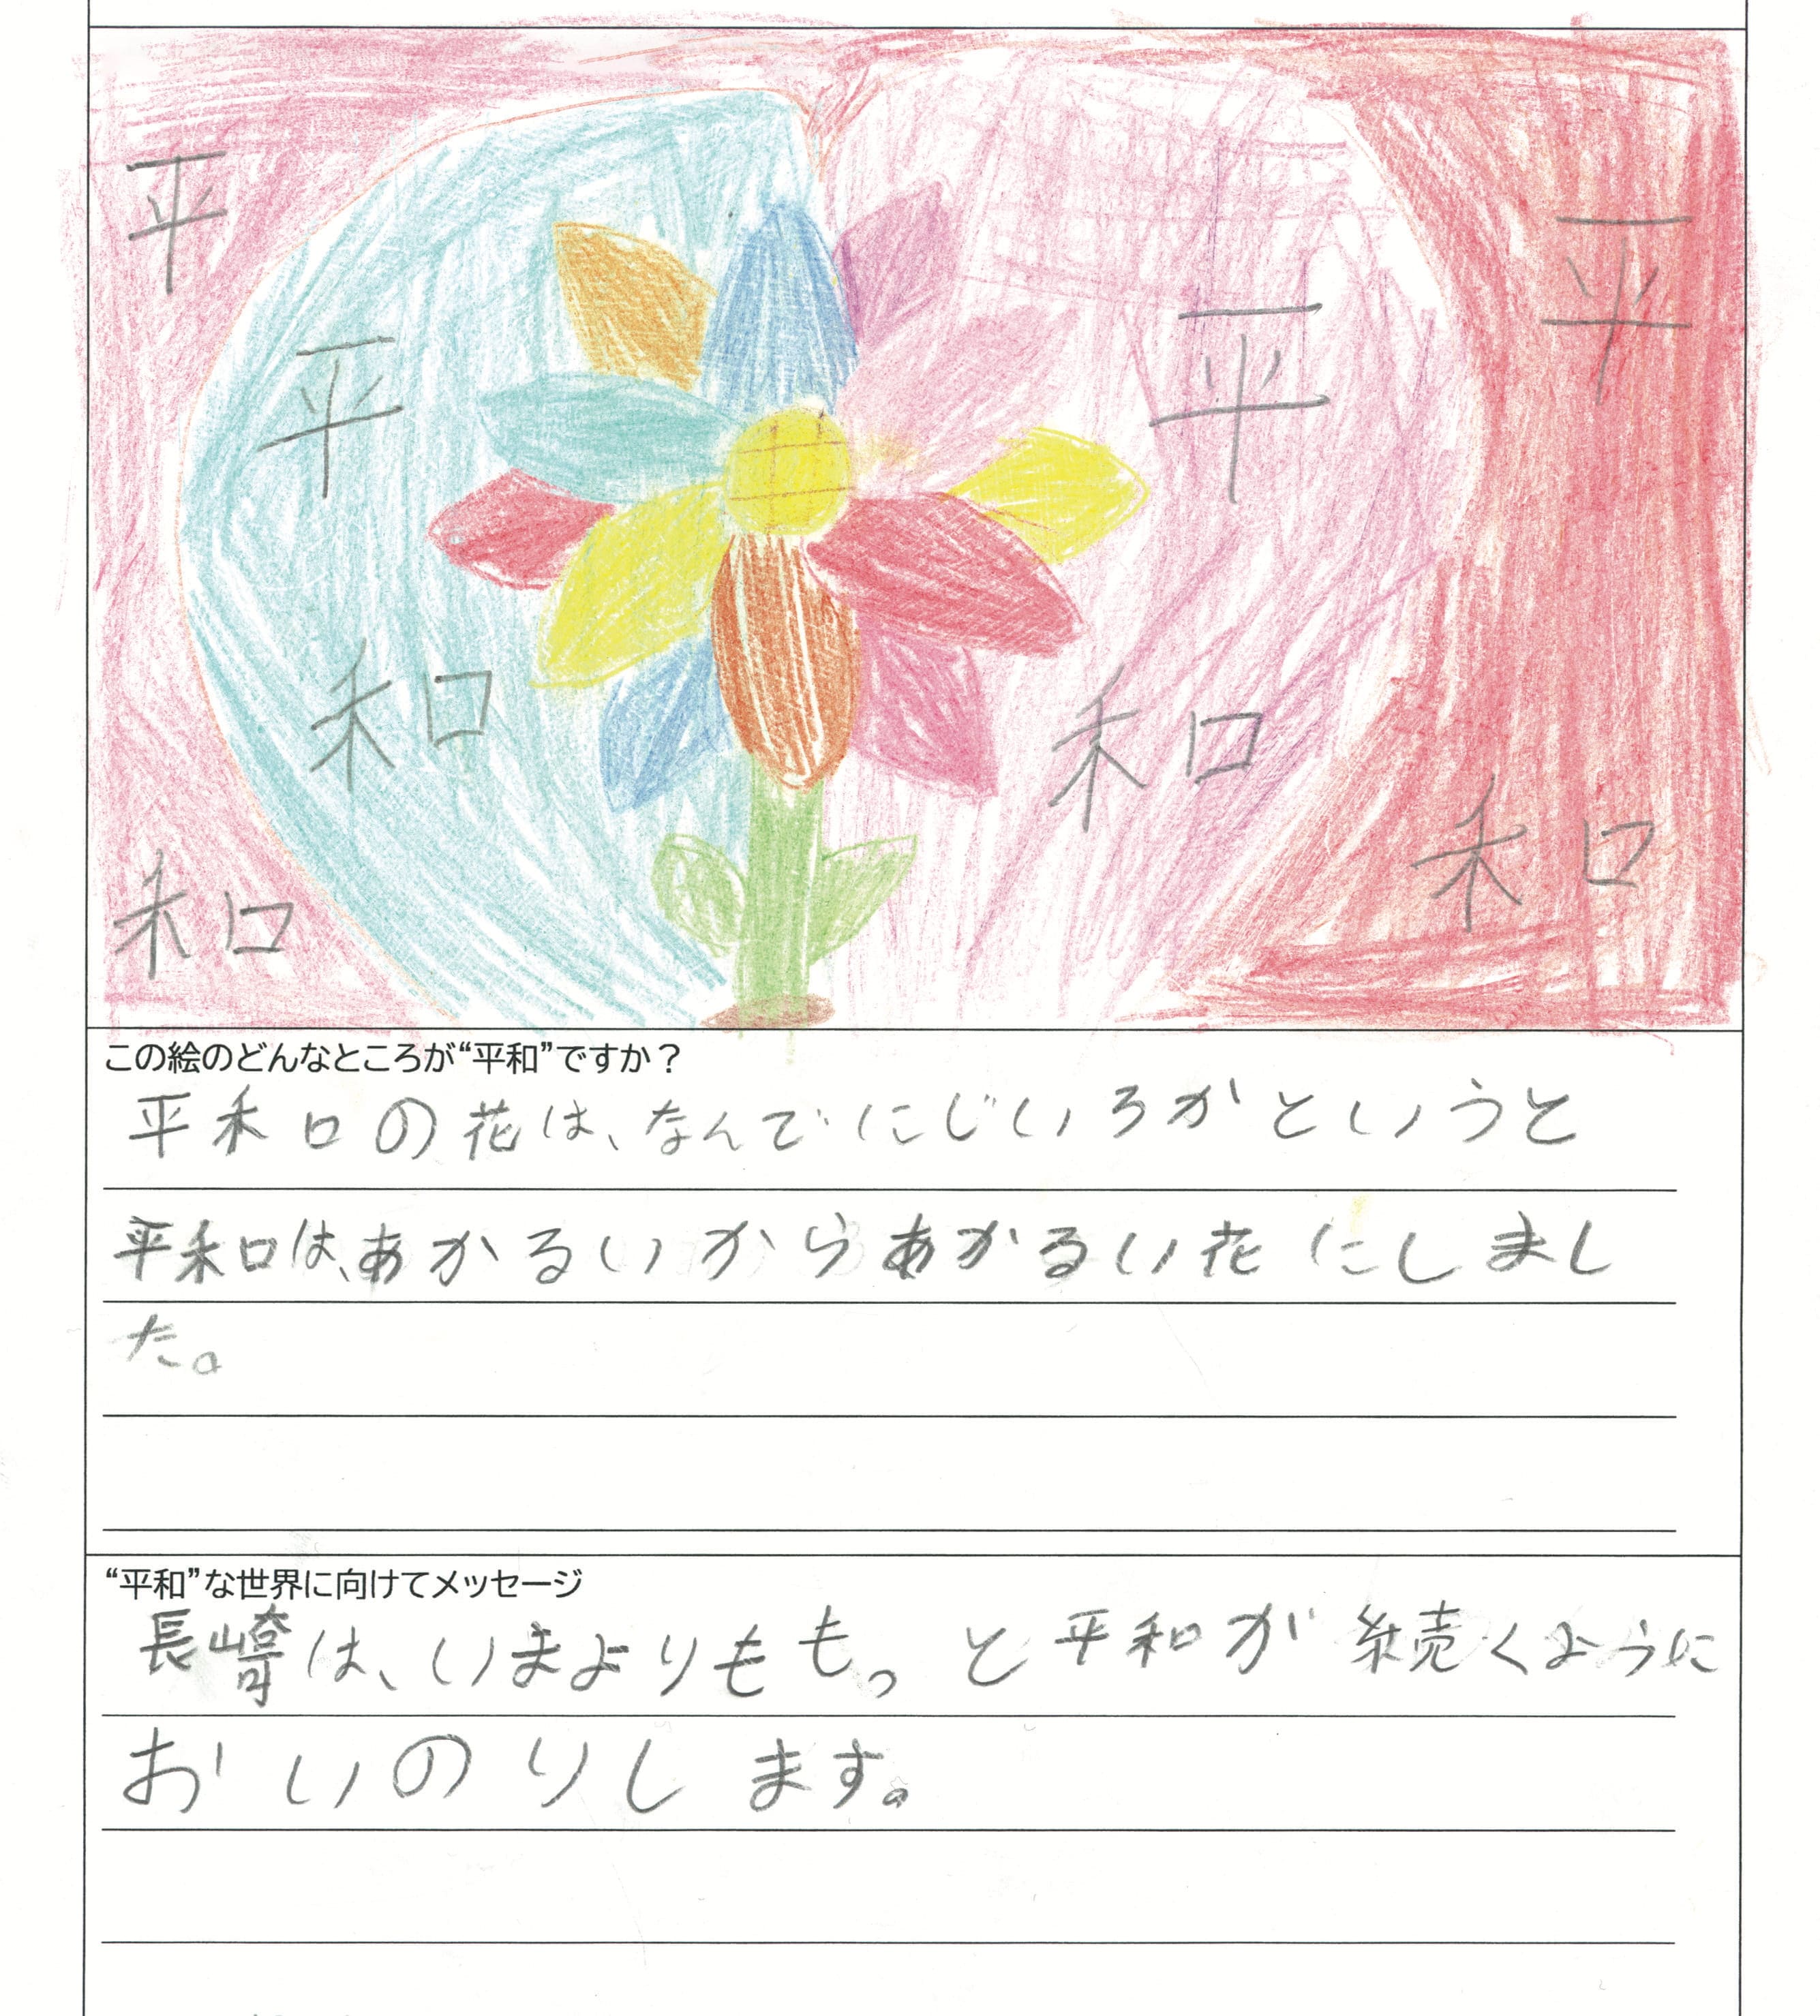 平 平 平 平
和 和 和 和
この絵のどんなところが“平和”ですか？
平和の花は、なんでにじいろかというと
平和は、あかるいからあかるい花にしまし
た。
“平和”な世界に向けてメッセージ
長崎は、いまよりももっと平和が続くように
おいのりします。